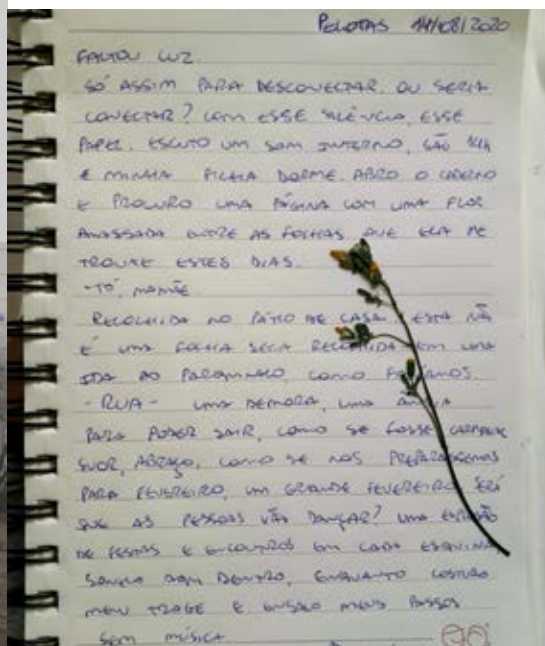 PELOTAS 14/08/2020
FALTOU LUZ.
SÓ ASSIM PARA DESCONECTAR. OU SERIA
CONECTAR? COM ESSE SILÊNCIO, ESSE
PAPEL. ESCUTO UM SOM INTERNO, SÃO
E MINHA FILHA DORME. ABRO O CADERNO
E PROCURO UMA PÁGINA COM UMA FLOR
AMASSADA ENTRE AS FOLHAS QUE ELA ME
TROUXE ESTES DIAS.
-TÓ, MAMÃE.
RECOLHIDA NO PÁTIO DE CASA, ESTA NÃO
É UMA FOLHA SECA RECOLHIDA EM UMA
IDA AO PARQUINHO, COMO
- RUA - UMA DEMORA, UMA
PARA PODER SAIR, COMO SE FOSSE CARNAVAL
SUOR, ABRAÇO, COMO SE NOS PREPARÁSSEMOS
PARA FEVEREIRO, UM GRANDE FEVEREIRO. SERÁ
QUE AS PESSOAS VÃO DANÇAR? UMA
DE FESTAS E ENCONTROS EM CADA ESQUINA
SONHO BEM DENTRO, ENQUANTO COSTURO
MEU TRAGE E ENSAIO MEUS PASSOS
SEM MÚSICA